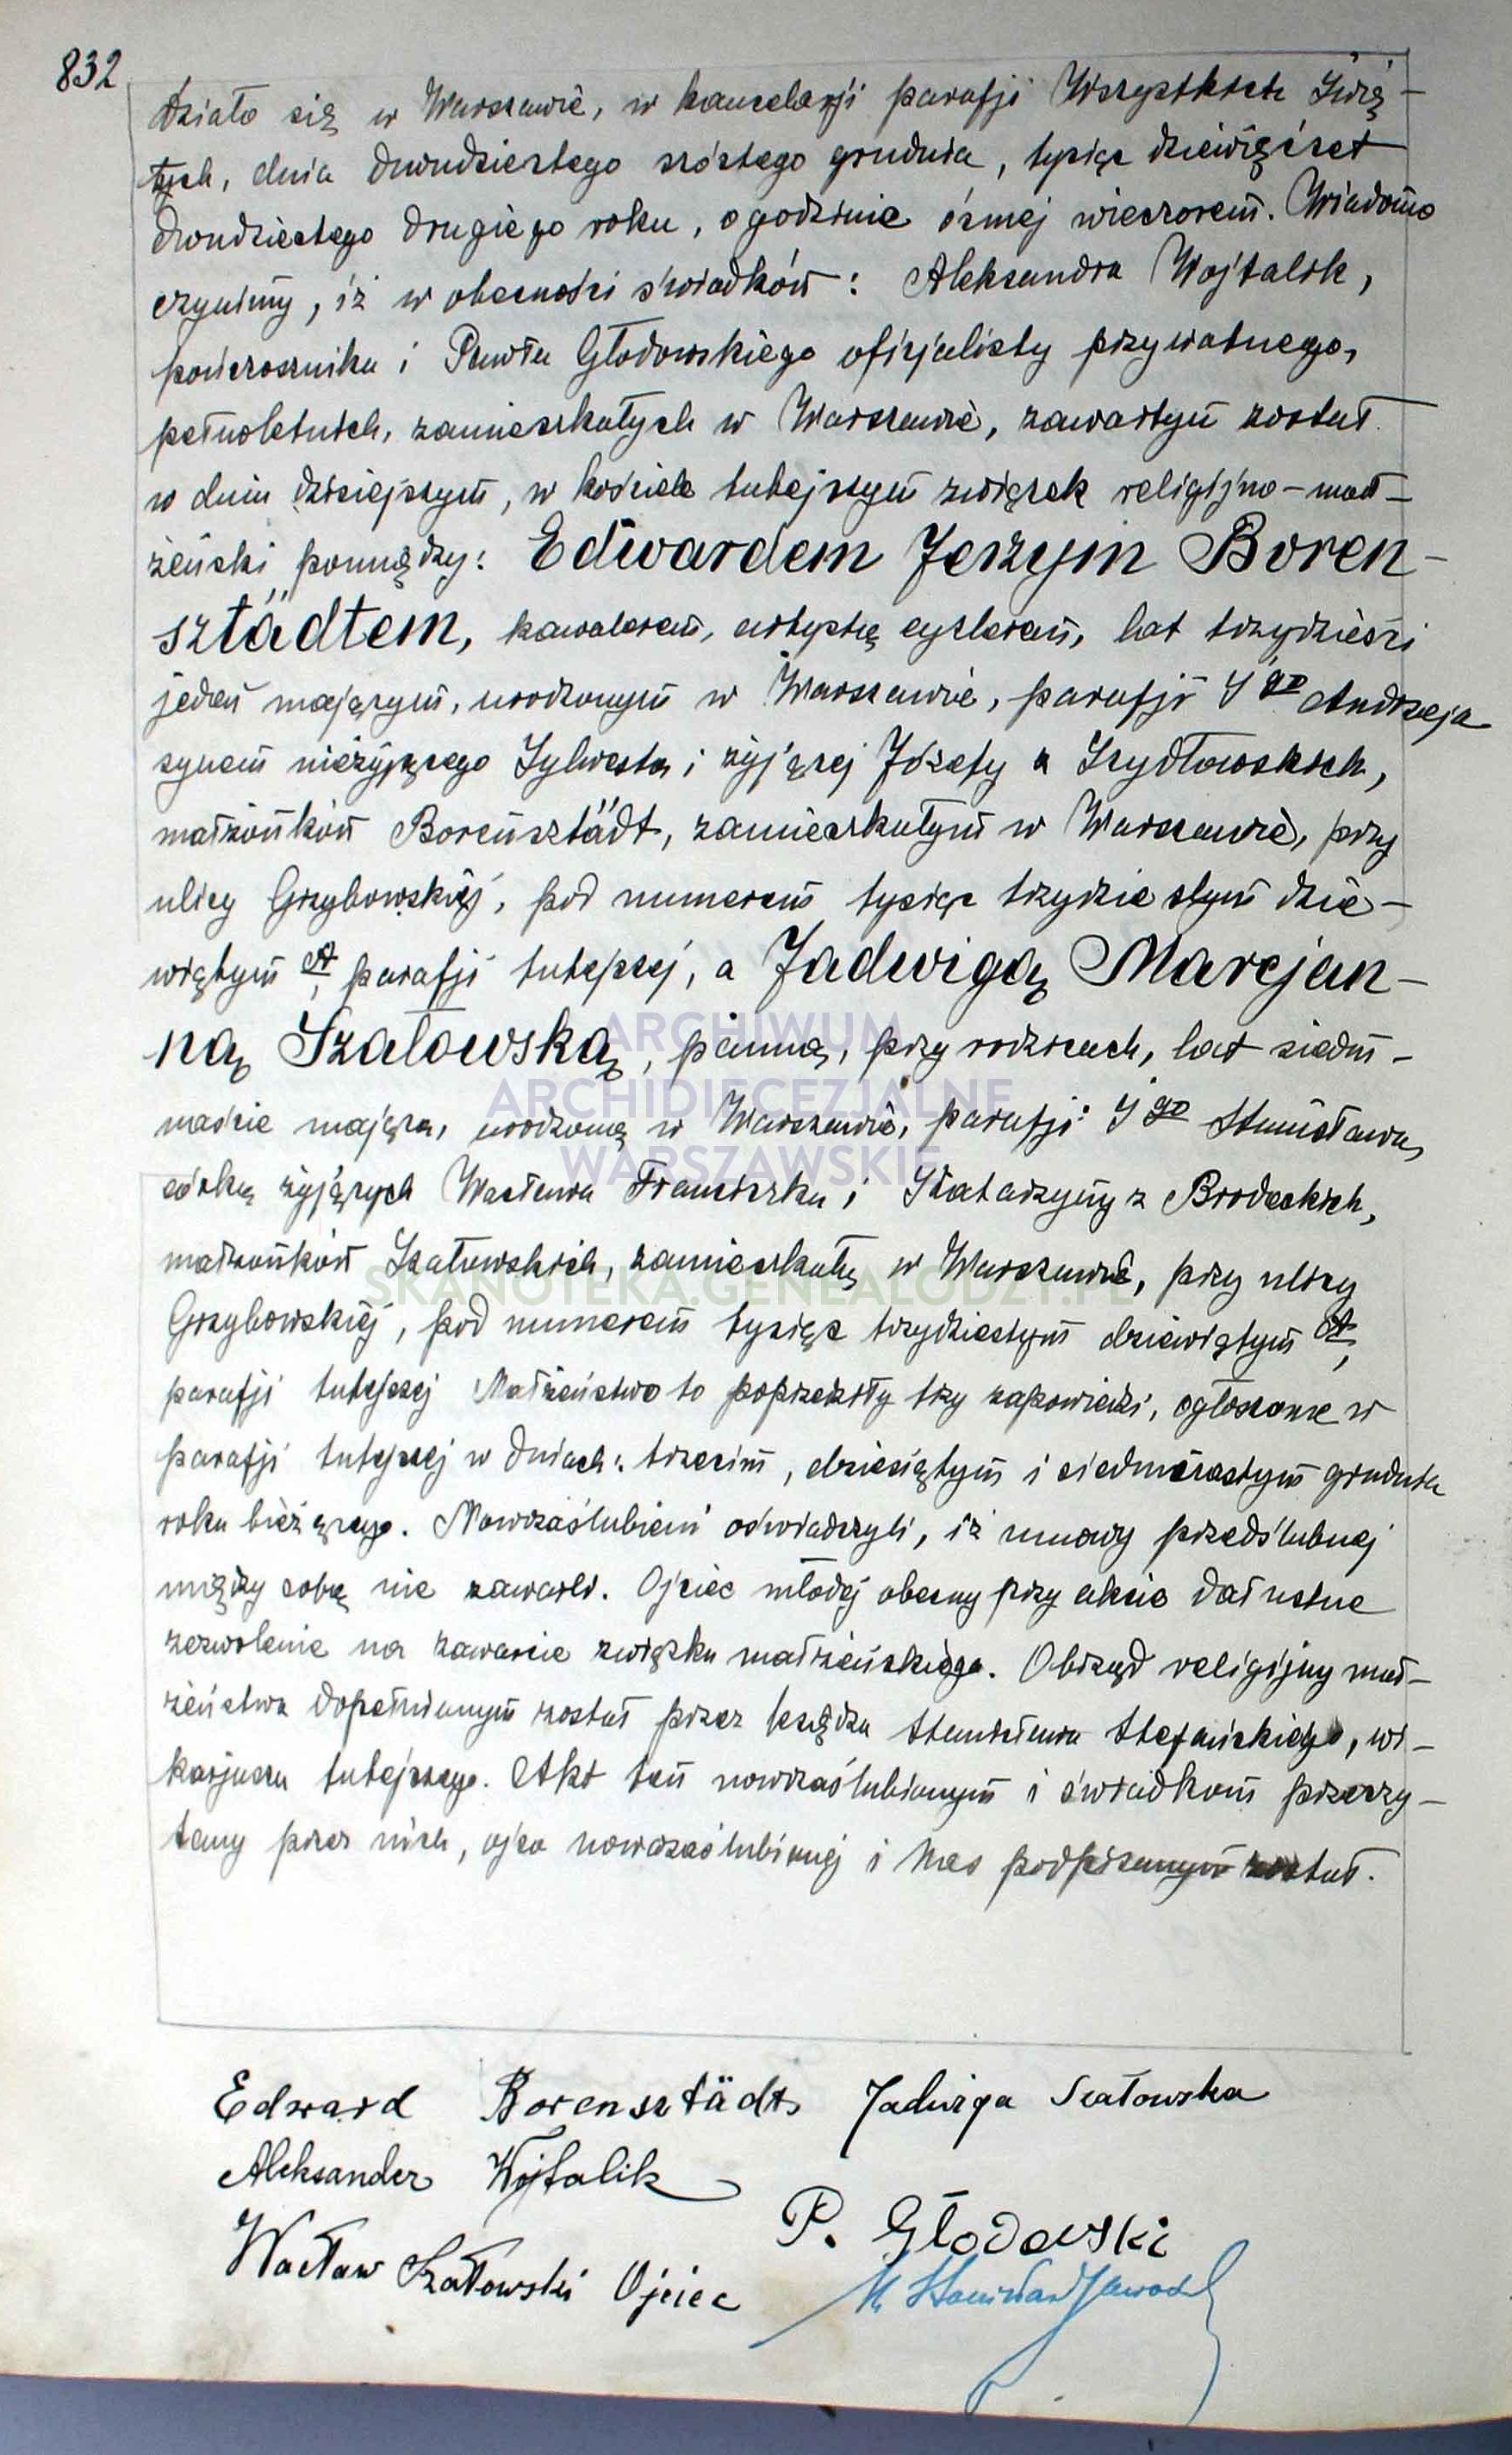 832
Działo się w Warszawie, w kancelarji parafji Wszystkich Świę-
tych, dnia dwudziestego szóstego grudnia, tysiąc dziewięćset
dwudziestego drugiego roku, o godzinie ósmej wieczorem. Wiadomo
czynimy, iż w obecności świadków: Aleksandra Wojtalik,
powroźnika i Pawła Głodowskiego oficjalisty prywatnego,
pełnoletnich, zamieszkałych w Warszawie, zawartym został
w dniu dzisiejszym, w kościele tutejszym związek religijno-mał-
żeński pomiędzy: Edwardem Jerzym Boren-
sztädtem, kawalerem, artystą cyzlerem, lat trzydzieści
jeden mającym, urodzonym w Warszawie, parafji Ś go Andrzeja
synem nieżyjącego Sylwestra i żyjącej Józefy z Szydłowskich,
małżonków Borensztädt, zamieszkałym w Warszawie, przy
ulicy Grzybowskiej, pod numerem tysiąc trzydziestym dzie-
wiątym A, parafji tutejszej, a Jadwigą Marcjan-
ną Szałowską, panną, przy rodzicach, lat siedm-
naście mającą, urodzoną w Warszawie, parafji Ś go Stanisława,
córką żyjących Wacława Franciszka i Katarzyny z Brodeckich,
małżonków Szałowskich, zamieszkałą w Warszawie, przy ulicy
Grzybowskiej, pod numerem tysiąc trzydziestym dziewiątym A,
parafji tutejszej Małżeństwo to poprzedziły trzy zapowiedzi, ogłoszone w
parafji tutejszej w dniach: trzecim, dziesiątym i siedmnastym grudnia
roku bieżącego. Nowozaślubieni oświadczyli, iż umowy przedślubnej
między sobą nie zawarli. Ojciec młodej obecny przy akcie dał ustne
zezwolenie na zawarcie związku małżeńskiego. Obrząd religijny mał-
żeństwa dopełnionym został przez księdza Stanisława Stefańskiego, wi-
karjusza tutejszego. Akt ten nowozaślubionym i świadkom przeczy-
tany przez nich, ojca nowozaślubionej i Nas podpisanym został.
Edward Borensztädt Jadwiga Szałowska
Aleksander Wojtalik
P. Głodowski
Wacław Szałowski Ojciec
ARCHIWUM
ARCHIDIECEZJALNE
WARSZAWSKIE
SKANOTEKA.GENEALODZY.PL